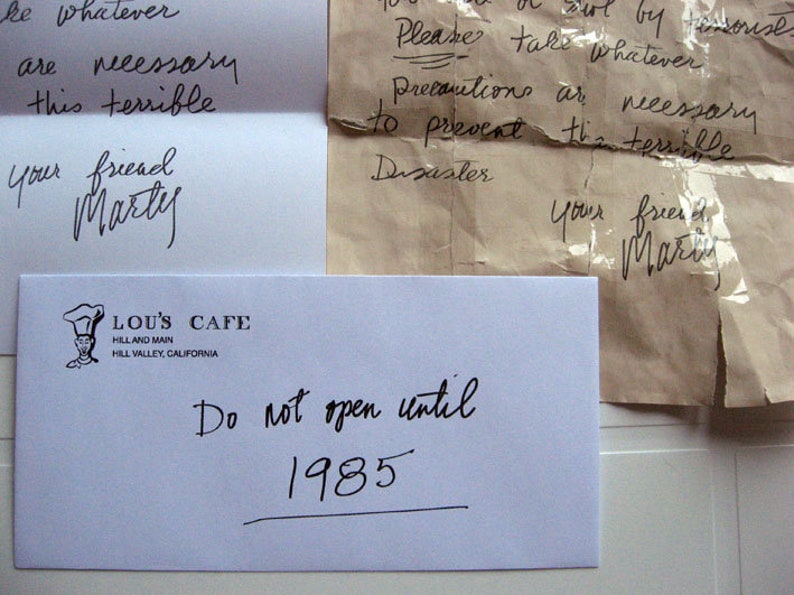 ke whatever
are necessary
this terrible
your friend
Marty
by terrorists
Please take whatever
precautions are necessary
to prevent this terrible
Disaster
your friend
Marty
LOU'S CAFE
HILL AND MAIN
HILL VALLEY, CALIFORNIA
Do not open until
1985